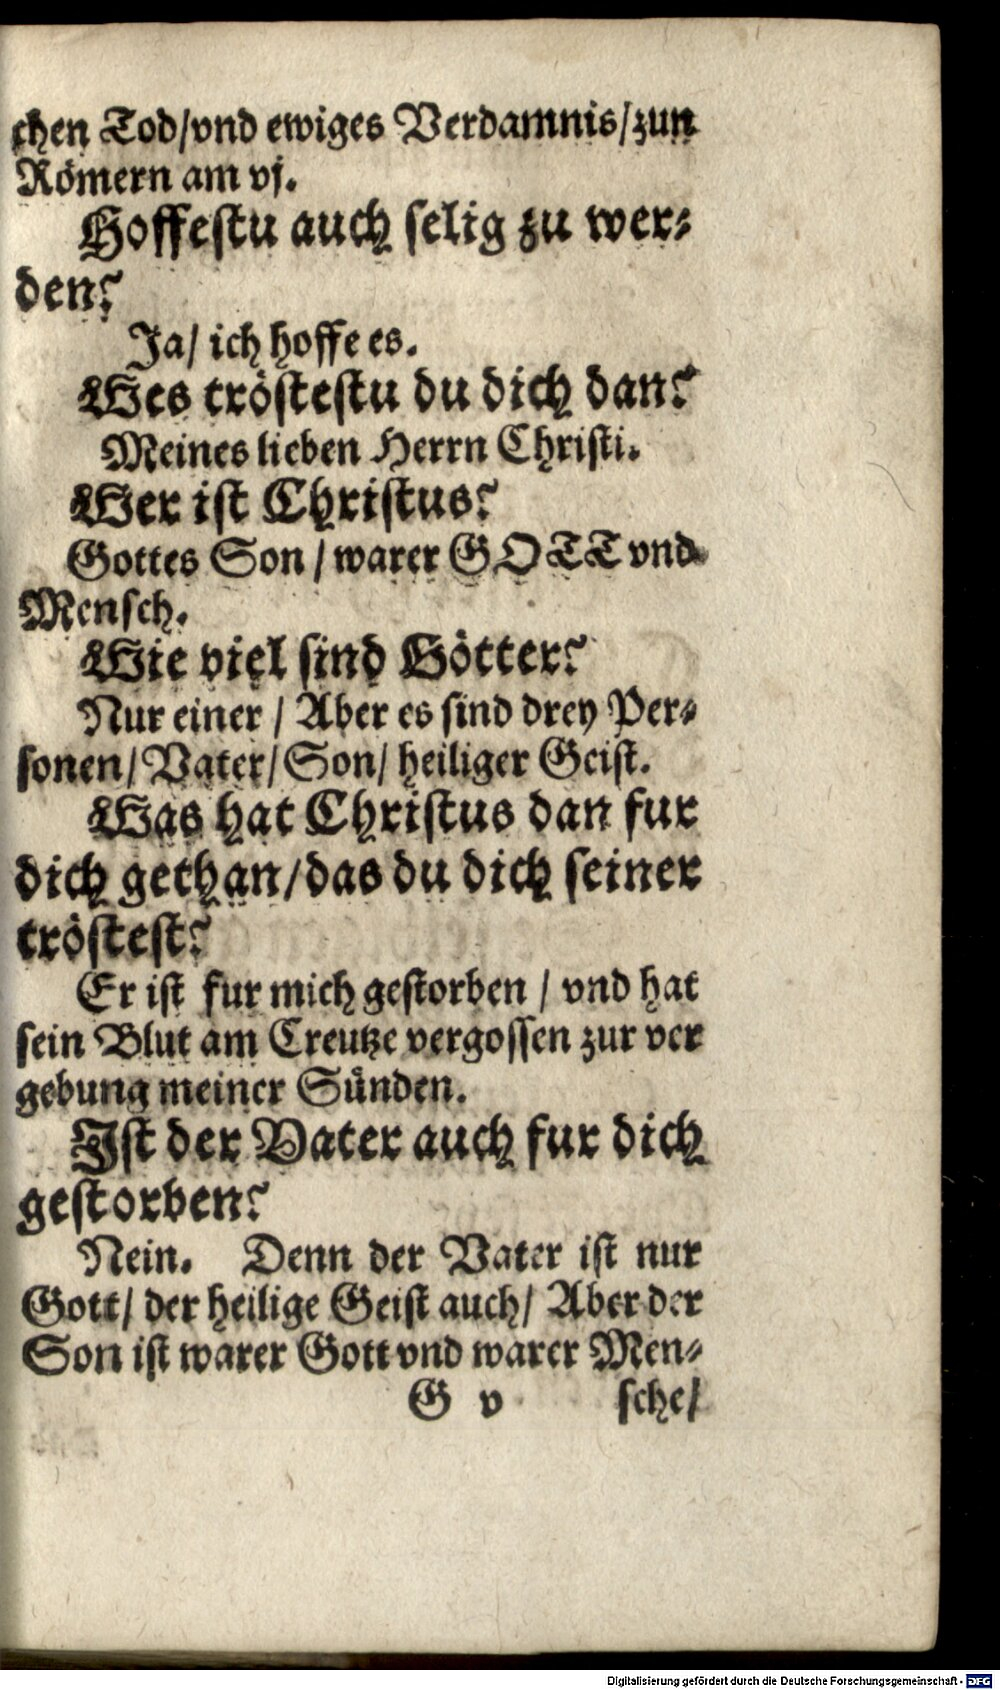 chen Tod/vnd ewiges Verdamnis/zun
Römern am vj.
Hoffestu auch selig zu wer-
den?
Ja/ ich hoffe es.
Wes tröstestu du dich dan?
Meines lieben Herrn Christi.
Wer ist Christus?
Gottes Son / warer GOTT vnd
Mensch.
Wie viel sind Götter?
Nur einer / Aber es sind drey Per-
sonen/ Vater/ Son/ heiliger Geist.
Was hat Christus dan fur
dich gethan/das du dich seiner
tröstest?
Er ist fur mich gestorben / vnd hat
sein Blut am Creutze vergossen zur ver
gebung meiner Sünden.
Ist der Vater auch fur dich
gestorben?
Nein. Denn der Vater ist nur
Gott/ der heilige Geist auch/ Aber der
Son ist warer Gott vnd warer Men-
G v sche/
Digitalisierung gefördert durch die Deutsche Forschungsgemeinschaft - DFG